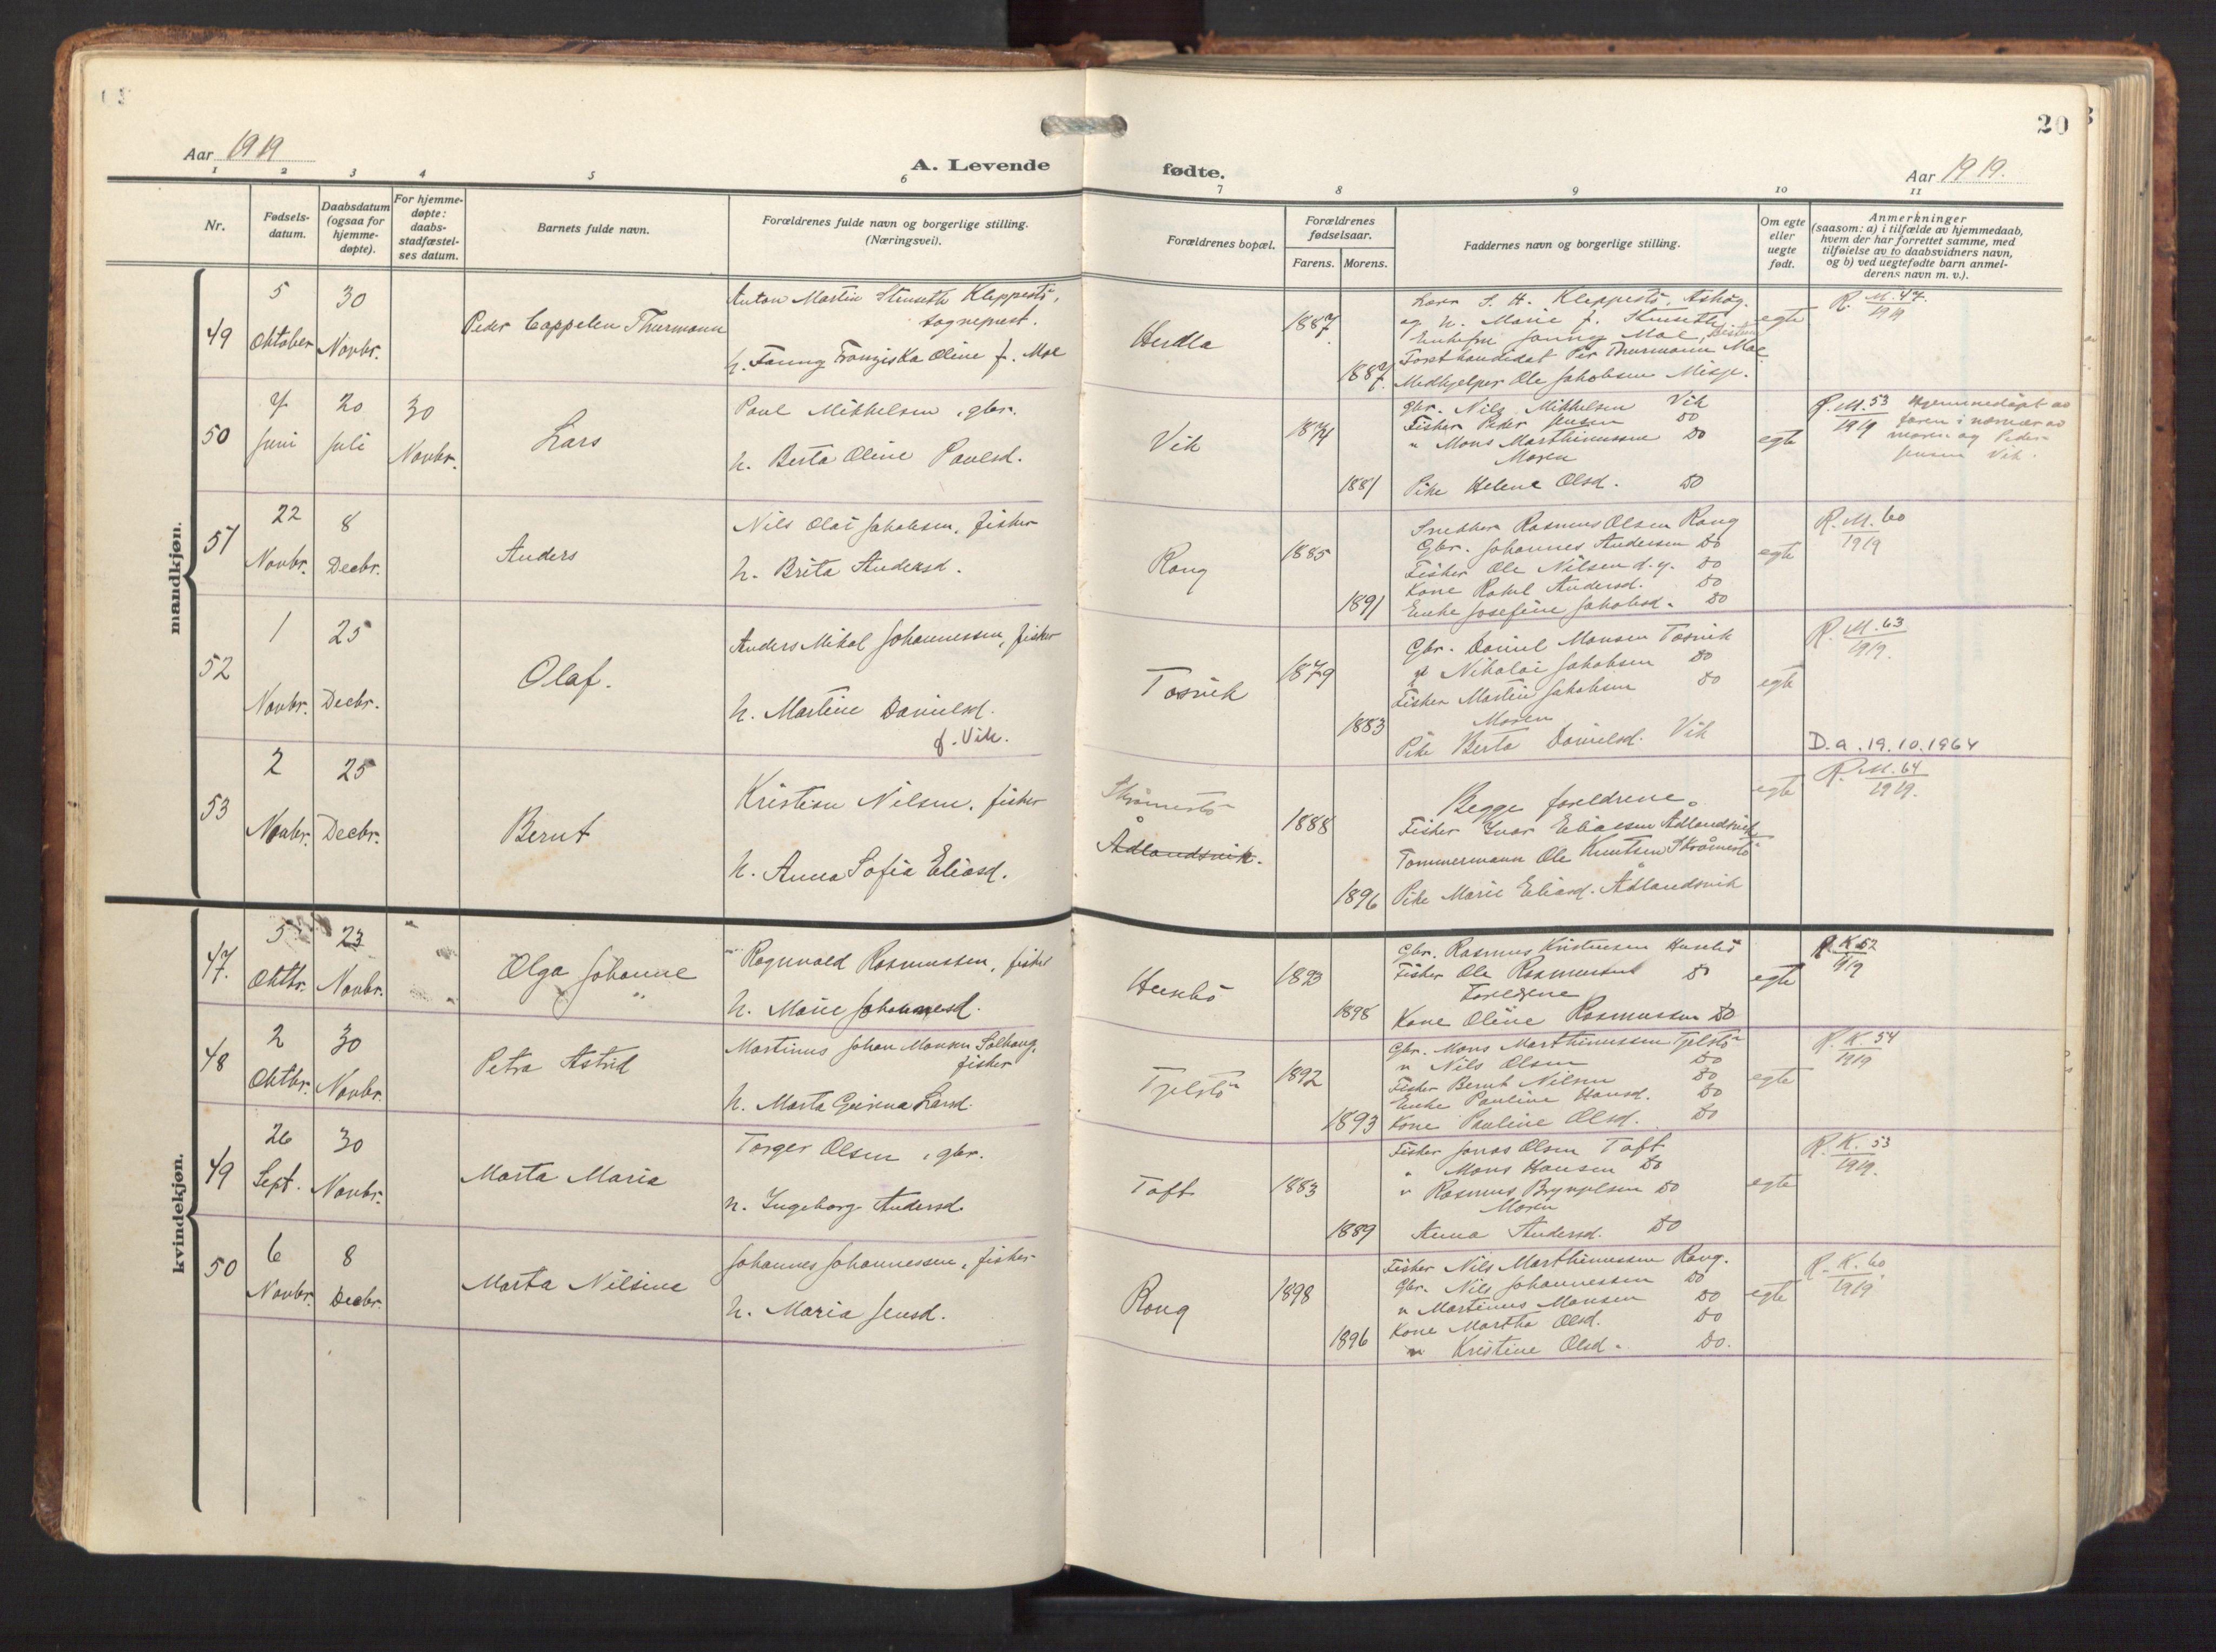 20
Aar 1919
A. Levende
fødte.
Aar 1919.
1 2 3 4 5 6 7 8 9 10 11
Nr.
Fødsels-
datum.
Daabsdatum
(ogsaa for
hjemme-
døpte).
For hjemme-
døpte:
daabs-
stadfæstel-
ses datum.
Barnets fulde navn.
Forældrenes fulde navn og borgerlige stilling.
(Næringsvei).
Forældrenes bopæl.
Forældrenes
fødselsaar.
Farens. Morens.
Faddernes navn og borgerlige stilling.
Om egte
eller
uegte
født.
Anmerkninger
(saasom: a) i tilfælde av hjemmedaab,
hvem der har forrettet samme, med
tilføielse av to daabsvidners navn,
og b) ved uegtefødte barn anmel-
derens navn m. v.).
mandkjøn.
49
5
Oktober
30
Novbr.
Peder Cappelen Thurmann
Anton Martin Stenseth Kleppestö,
sogneprest.
h. Fanny Franziska Oline f. Moe
Herdla
1887
1887
S. H. Kleppestö, Askøy.
og h. Marie f. Stenseth
Enkefru Fanny Moe,
Forstkandidat Per Thurmann Moe
Medhjelper Ole Jakobsen Misje.
egte
R. M. 47.
1919
50
7
Juni
20
Juli
30
Novbr.
Lars
Paul Mikkelsen, gbr.
h. Berta Oline Paulsd.
Vik
1874
1881
Gbr. Nils Mikkelsen Vik
Fisker Peder Jensen Do
" Mons Marthinussen Do
Moren
Pike Helene Olsd. Do
egte
R. M. 53
1919
Hjemmedøpt av
faren i nærvær av
moren og Peder
Jensen Vik.
51
22
Novbr.
8
Decbr.
Anders
Nils Olai Jakobsen, fisker
h. Brita Andersd.
Rong
1885
1891
Snedker Rasmus Olsen Rong
Gbr. Johannes Andersen Do
Fisker Ole Nilsen d.y. Do
Kone Rakel Andersd. Do
Enke Josefine Jakobsd. Do
egte
R. M. 60
1919
52
1
Novbr.
25
Decbr.
Olaf.
Anders Mikal Johannessen, fisker
h. Martine Danielsd.
f. Vik.
Tosvik
1879
1883
Gbr. Daniel Monsen Tosvik
" Nikolai Jakobsen Do
Fisker Martin Jakobsen Do
Moren
Pike Berta Danielsd. Vik
egte
R. M. 63
1919.
D.a. 19.10.1964
53
2
Novbr.
25
Decbr.
Bernt
Kristian Nilsen, fisker
h. Anna Sofia Eliasd.
Skråmestö
Ådlandsvik.
1888
1896
Begge foreldrene.
Fisker Ivar Eliassen Adlandsvik
Tømmermann Ole Knutsen Skråmestö
Pike Marie Eliasd. Ådlandsvik
egte
R. M. 64
1919.
kvindekjøn.
47.
5
Oktbr.
23
Novbr.
Olga Johanne
Ragnvald Rasmussen, fisker
h. Marie Johannesd.
Husebö
1893
1898
Gbr. Rasmus Kristensen Husebö
Fisker Ole Rasmussen Do
Foreldrene
Kone Oline Rasmussen Do
egte
R. K. 52
919
48
2
Oktbr.
30
Novbr.
Petra Astrid
Martinus Johan Monsen Solhaug,
fisker
h. Marta Larsd.
Tjelstö
1892
1893
Gbr. Mons Marthinussen Tjelstö
" Nils Olsen Do
Fisker Bernt Nilsen Do
Enke Pauline Hansd. Do
Kone Pauline Olsd. Do
egte
R. K. 54
1919
49
26
Sept.
30
Novbr.
Marta Maria
Torger Olsen, gbr.
h. Ingeborg Andersd.
Toft
1883
1889
Fisker Jonas Olsen Toft
" Mons Hansen Do
" Rasmus Brynjelsen Do
Moren
Anna Andersd. Do
egte
R. K. 53
1919.
50
6
Novbr.
8
Decbr.
Marta Nilsine
Johannes Johannessen, fisker
h. Maria Jensd.
Rong
1898
1896
Fisker Nils Marthinussen Rong.
Gbr. Nils Johannessen Do
" Martinus Monsen Do
Kone Martha Olsd. Do
" Kristine Olsd. Do.
egte
R. K. 60
1919.